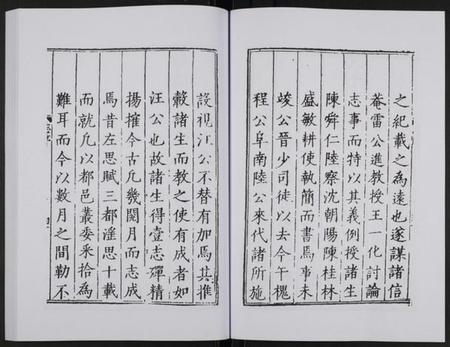 之紀載之為遠也遂謀諸信
菴雷公進教授王一化討論
志事而特以其義例授諸生
陳舜仁陸察沈朝陽陳桂林
盛敏耕使執簡而書焉事未
峻公晉少司徒以去今午槐
程公阜南陸公來代諸所施
設視汪公不替有加焉其推
轂諸生而教之使有成者如
汪公也故諸生得壹志殫精
揚搉今古凡幾閱月而志成
焉昔左思賦三都淫思十載
而就凡以都邑叢委采拾為
難耳而今以數月之間勒不